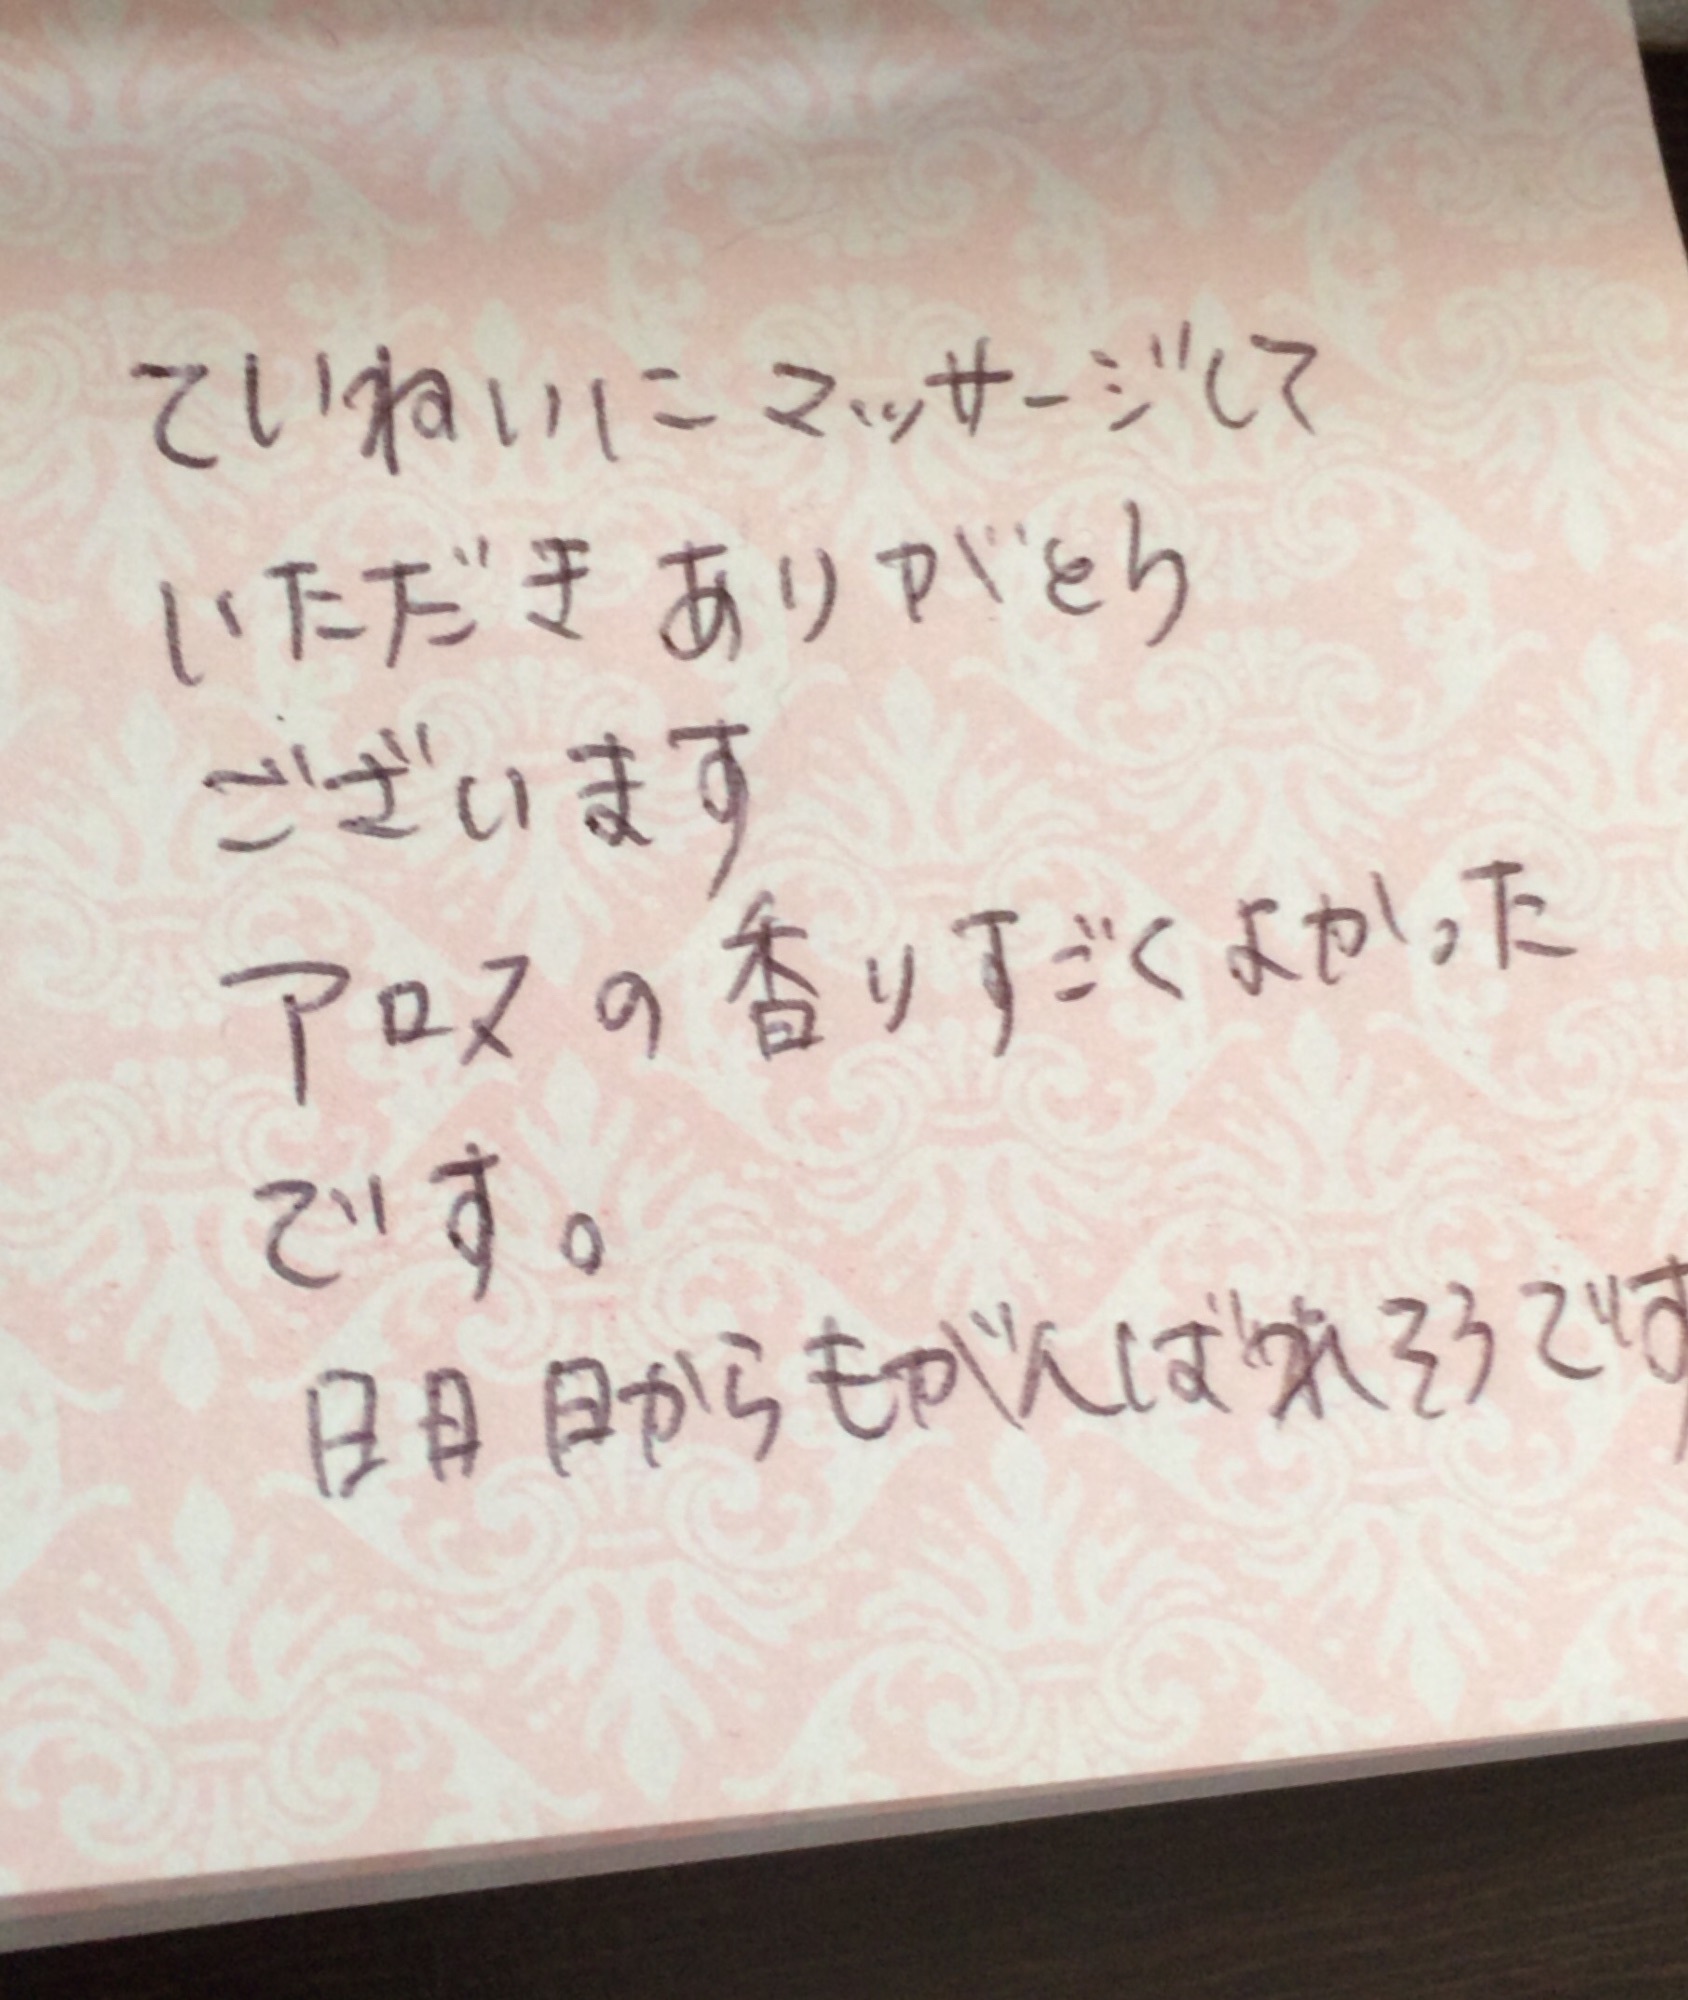 ていねいにマッサージして
いただきありがとう
ございます
アロマの香りすごくよかった
です。
明日からもがんばれそうです